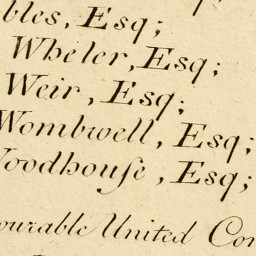 bles, Esq;
Wheler, Esq;
Weir, Esq;
Wombwell, Esq;
Woodhouſe, Esq;
ourable United Com